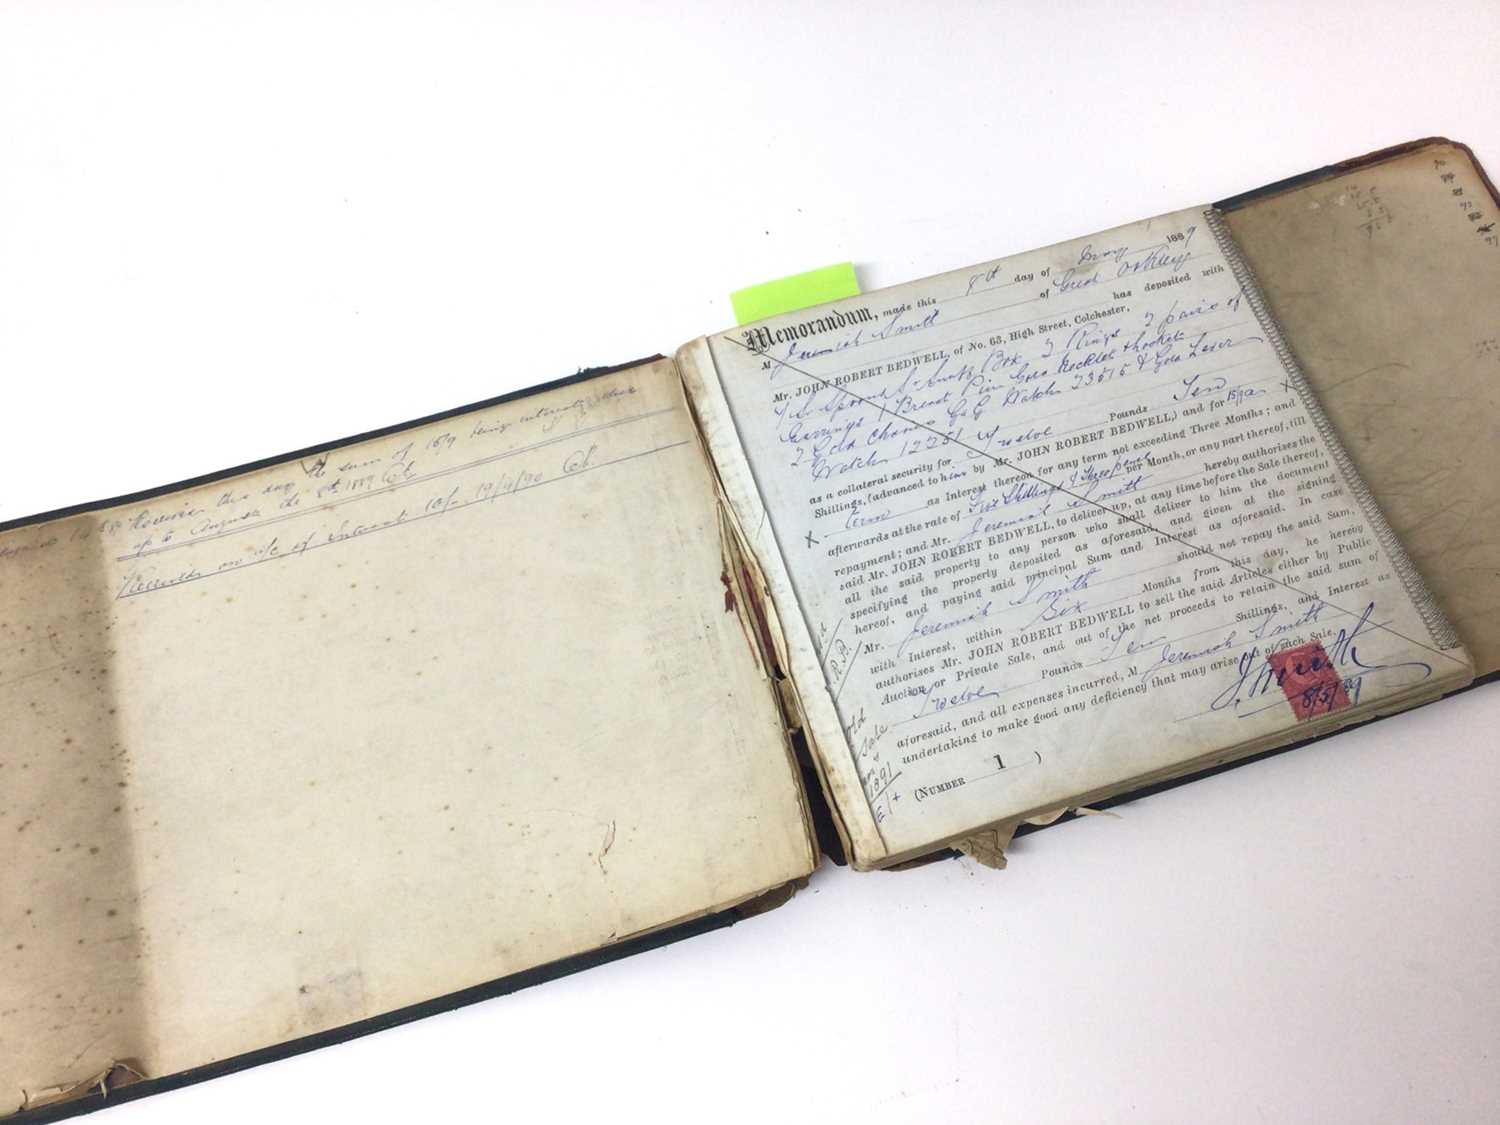 Received this day the sum of 15/9 being interest due
up to August the 8th 1889
Received on a/c of interest 10/- 19/4/90
Memorandum, made this 8th day of May 1889
M Jeremiah Smith of Great Oakley
Mr. JOHN ROBERT BEDWELL, of No. 63, High Street, Colchester, has deposited with
Spoons Snuff Box 2 Rings 2 pairs of
Earrings 1 Breast Pin Gold Necklet & Locket
2 Gold Chains G G Watch 23515 & Gold Lever
Watch 12251
as a collateral security for Twelve Pounds Ten
Shillings, (advanced to him by Mr. JOHN ROBERT BEDWELL,) and for 15/9 a
X term as Interest thereon for any term not exceeding Three Months; and X
afterwards at the rate of Five Shillings & Threepence per Month, or any part thereof, till
repayment; and Mr. Jeremiah Smith hereby authorises the
said Mr. JOHN ROBERT BEDWELL, to deliver up, at any time before the Sale thereof,
all the said property to any person who shall deliver to him the document
specifying the property deposited as aforesaid, and given at the signing
hereof, and paying said principal Sum and Interest as aforesaid. In case
Mr. Jeremiah Smith should not repay the said Sum,
with Interest, within Six Months from this day, he hereby
authorises Mr. JOHN ROBERT BEDWELL to sell the said Articles either by Public
Auction or Private Sale, and out of the net proceeds to retain the said sum of
Twelve Pounds Ten Shillings, and Interest as
aforesaid, and all expenses incurred, M Jeremiah Smith
undertaking to make good any deficiency that may arise out of such Sale.
J Smith
8/5/89
(NUMBER 1 )
R.B.
Sale
1891